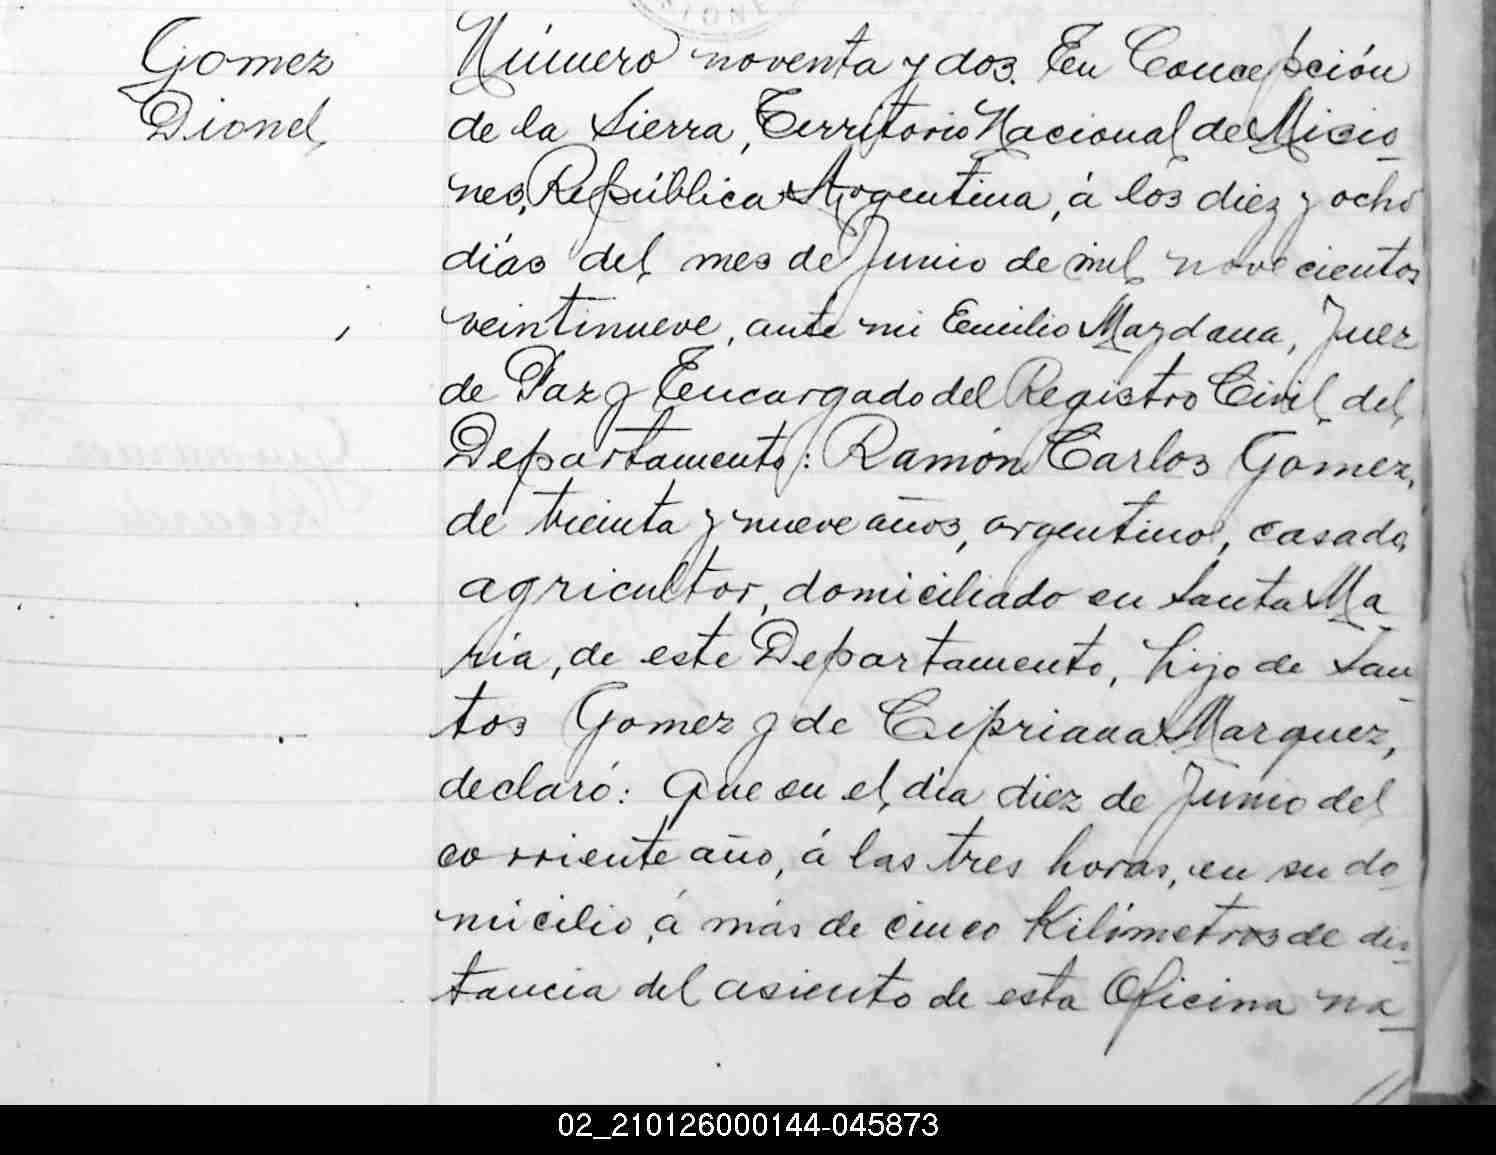 Gomez
Dionel
Número noventa y dos. En Concepción
de la Sierra, Territorio Nacional de Misio-
nes, República Argentina, á los diez y ocho
días del mes de Junio de mil novecientos
veintinueve, ante mi Emilio Maydana, Juez
de Paz y Encargado del Registro Civil del
Departamento: Ramón Carlos Gomez,
de treinta y nueve años, argentino, casado,
agricultor, domiciliado en Santa Ma-
ria, de este Departamento, hijo de San-
tos Gomez y de Cipriana Marquez,
declaró: Que en el día diez de Junio del
corriente año, á las tres horas, en su do-
micilio, á más de cinco Kilómetros de dis-
tancia del asiento de esta Oficina na-
02_210126000144-045873